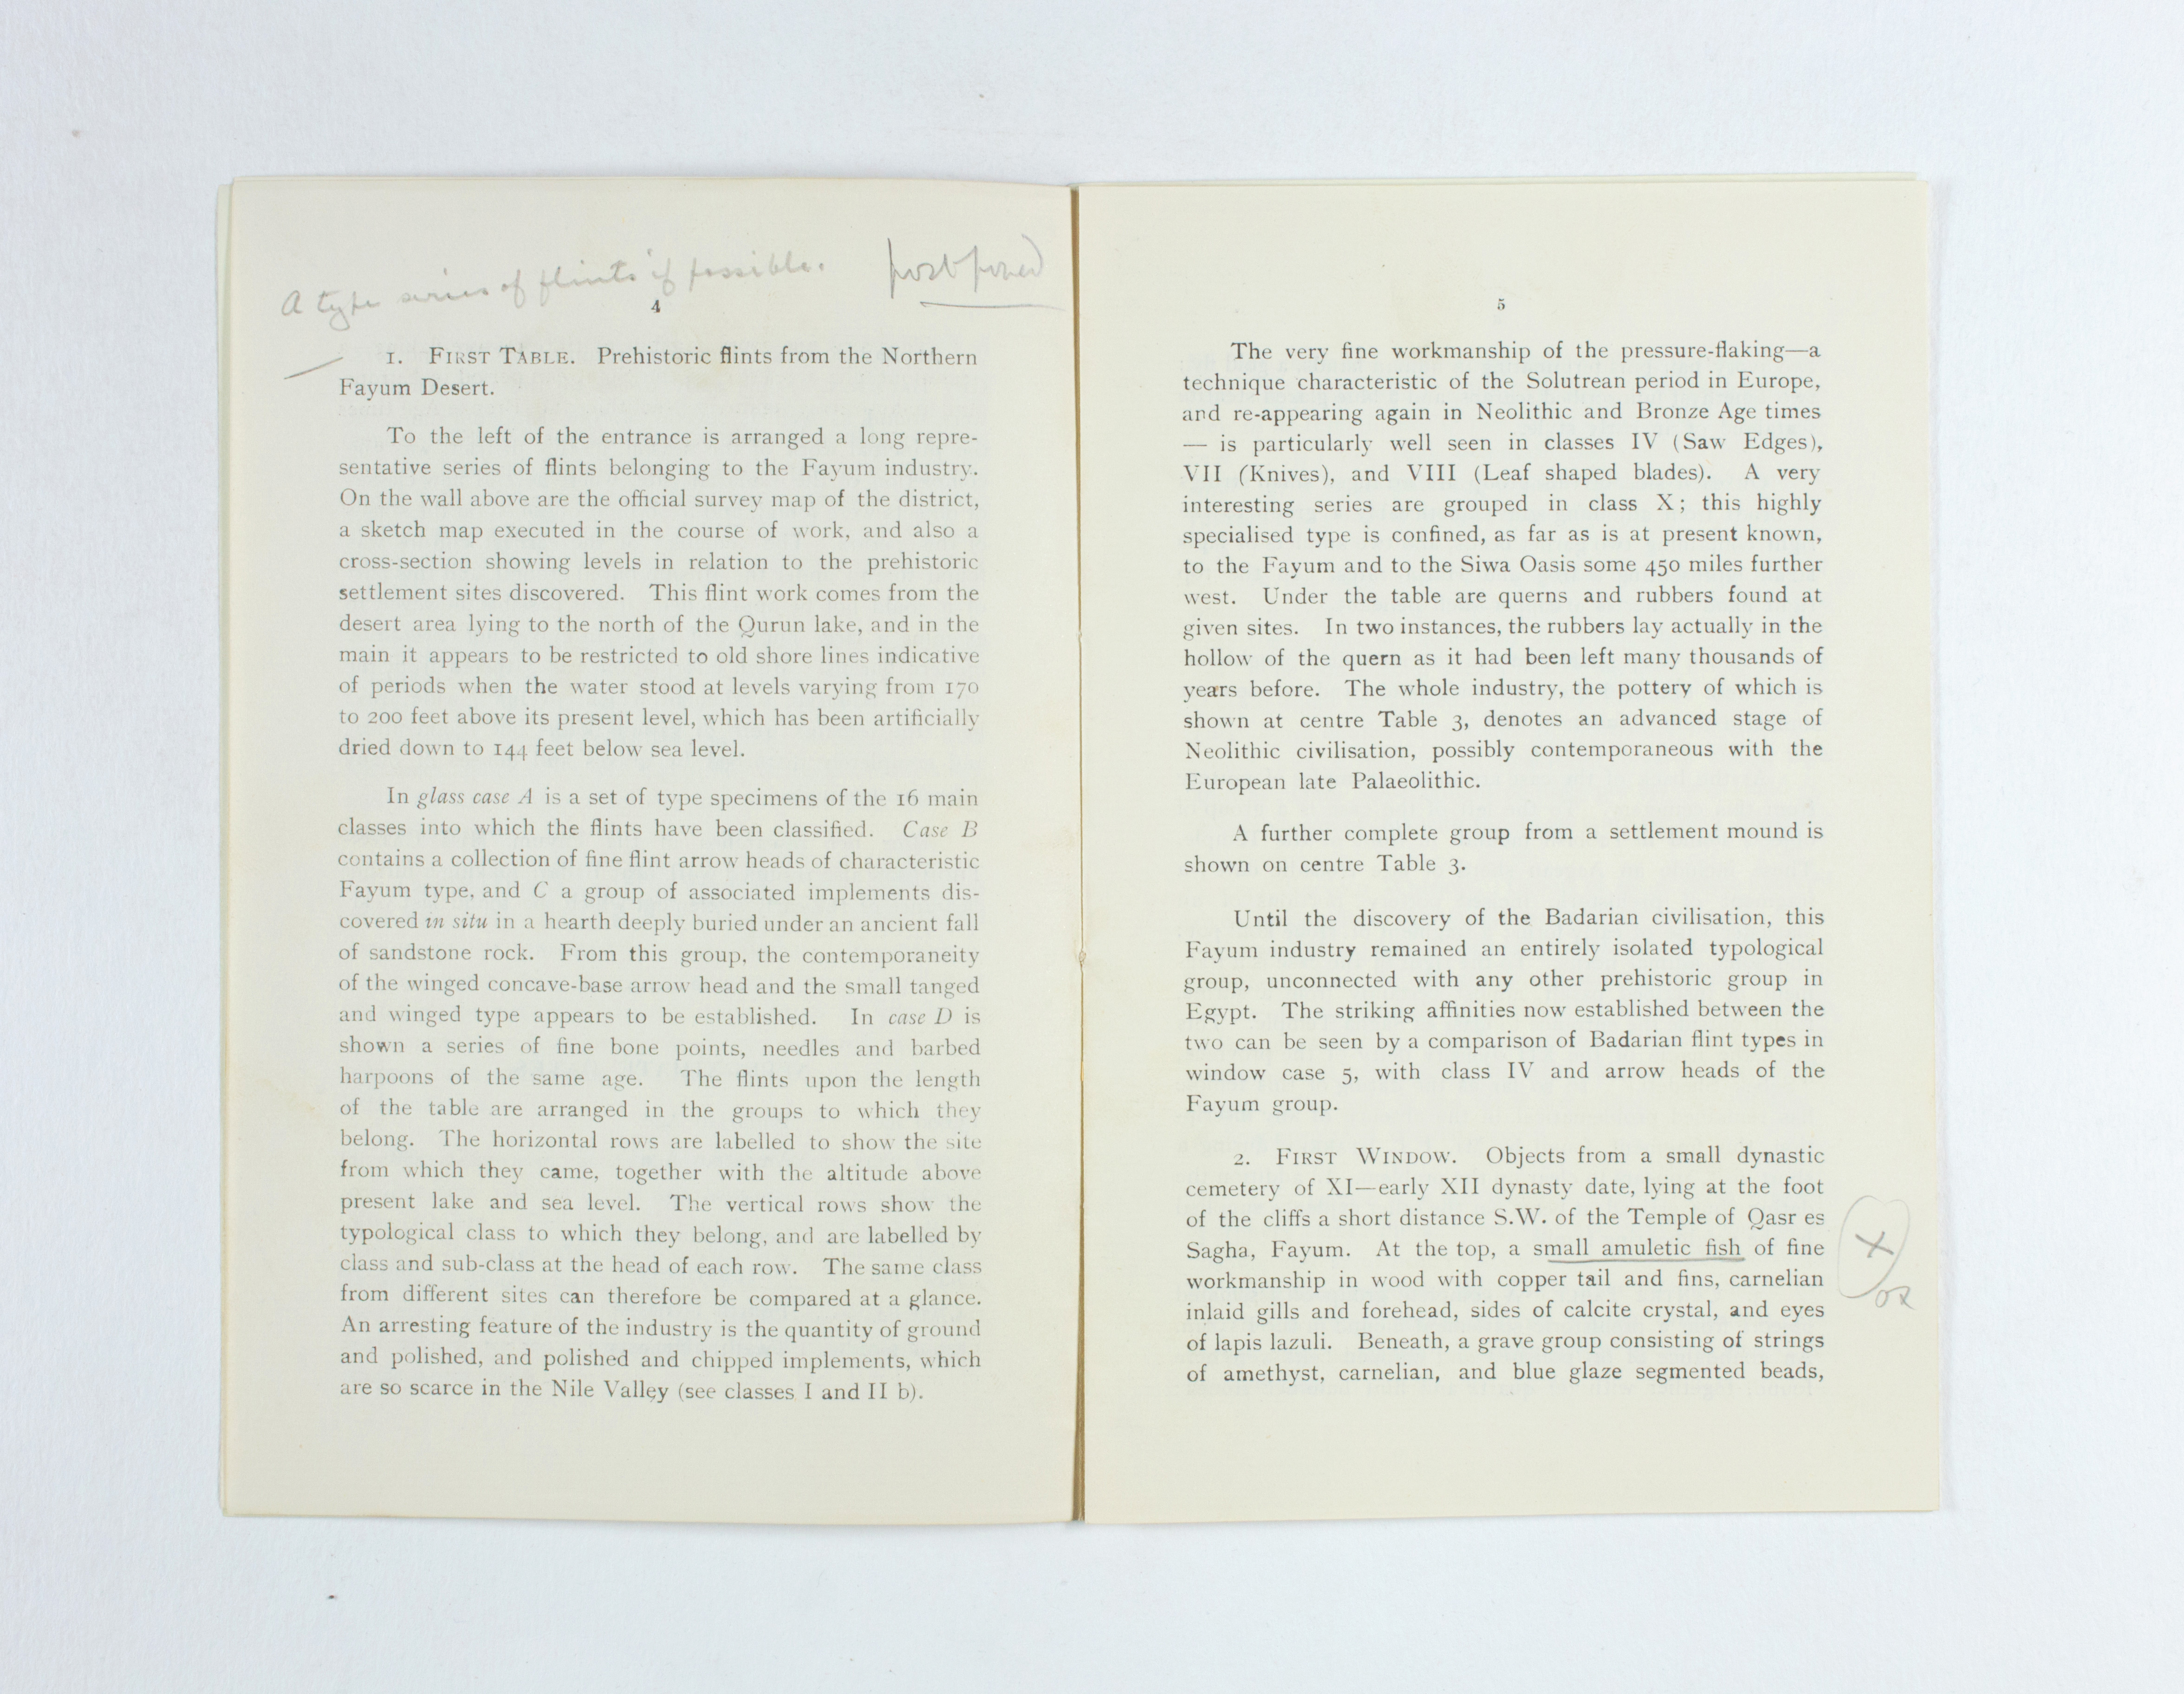 A type series of flints if possible.
postponed
4
1. FIRST TABLE. Prehistoric flints from the Northern
Fayum Desert.
To the left of the entrance is arranged a long repre-
sentative series of flints belonging to the Fayum industry.
On the wall above are the official survey map of the district,
a sketch map executed in the course of work, and also a
cross-section showing levels in relation to the prehistoric
settlement sites discovered. This flint work comes from the
desert area lying to the north of the Qurun lake, and in the
main it appears to be restricted to old shore lines indicative
of periods when the water stood at levels varying from 170
to 200 feet above its present level, which has been artificially
dried down to 144 feet below sea level.
In glass case A is a set of type specimens of the 16 main
classes into which the flints have been classified. Case B
contains a collection of fine flint arrow heads of characteristic
Fayum type, and C a group of associated implements dis-
covered in situ in a hearth deeply buried under an ancient fall
of sandstone rock. From this group, the contemporaneity
of the winged concave-base arrow head and the small tanged
and winged type appears to be established. In case D is
shown a series of fine bone points, needles and barbed
harpoons of the same age. The flints upon the length
of the table are arranged in the groups to which they
belong. The horizontal rows are labelled to show the site
from which they came, together with the altitude above
present lake and sea level. The vertical rows show the
typological class to which they belong, and are labelled by
class and sub-class at the head of each row. The same class
from different sites can therefore be compared at a glance.
An arresting feature of the industry is the quantity of ground
and polished, and polished and chipped implements, which
are so scarce in the Nile Valley (see classes I and II b).
5
The very fine workmanship of the pressure-flaking—a
technique characteristic of the Solutrean period in Europe,
and re-appearing again in Neolithic and Bronze Age times
— is particularly well seen in classes IV (Saw Edges),
VII (Knives), and VIII (Leaf shaped blades). A very
interesting series are grouped in class X; this highly
specialised type is confined, as far as is at present known,
to the Fayum and to the Siwa Oasis some 450 miles further
west. Under the table are querns and rubbers found at
given sites. In two instances, the rubbers lay actually in the
hollow of the quern as it had been left many thousands of
years before. The whole industry, the pottery of which is
shown at centre Table 3, denotes an advanced stage of
Neolithic civilisation, possibly contemporaneous with the
European late Palaeolithic.
A further complete group from a settlement mound is
shown on centre Table 3.
Until the discovery of the Badarian civilisation, this
Fayum industry remained an entirely isolated typological
group, unconnected with any other prehistoric group in
Egypt. The striking affinities now established between the
two can be seen by a comparison of Badarian flint types in
window case 5, with class IV and arrow heads of the
Fayum group.
2. FIRST WINDOW. Objects from a small dynastic
cemetery of XI—early XII dynasty date, lying at the foot
of the cliffs a short distance S.W. of the Temple of Qasr es
Sagha, Fayum. At the top, a small amuletic fish of fine
workmanship in wood with copper tail and fins, carnelian
inlaid gills and forehead, sides of calcite crystal, and eyes
of lapis lazuli. Beneath, a grave group consisting of strings
of amethyst, carnelian, and blue glaze segmented beads,
X